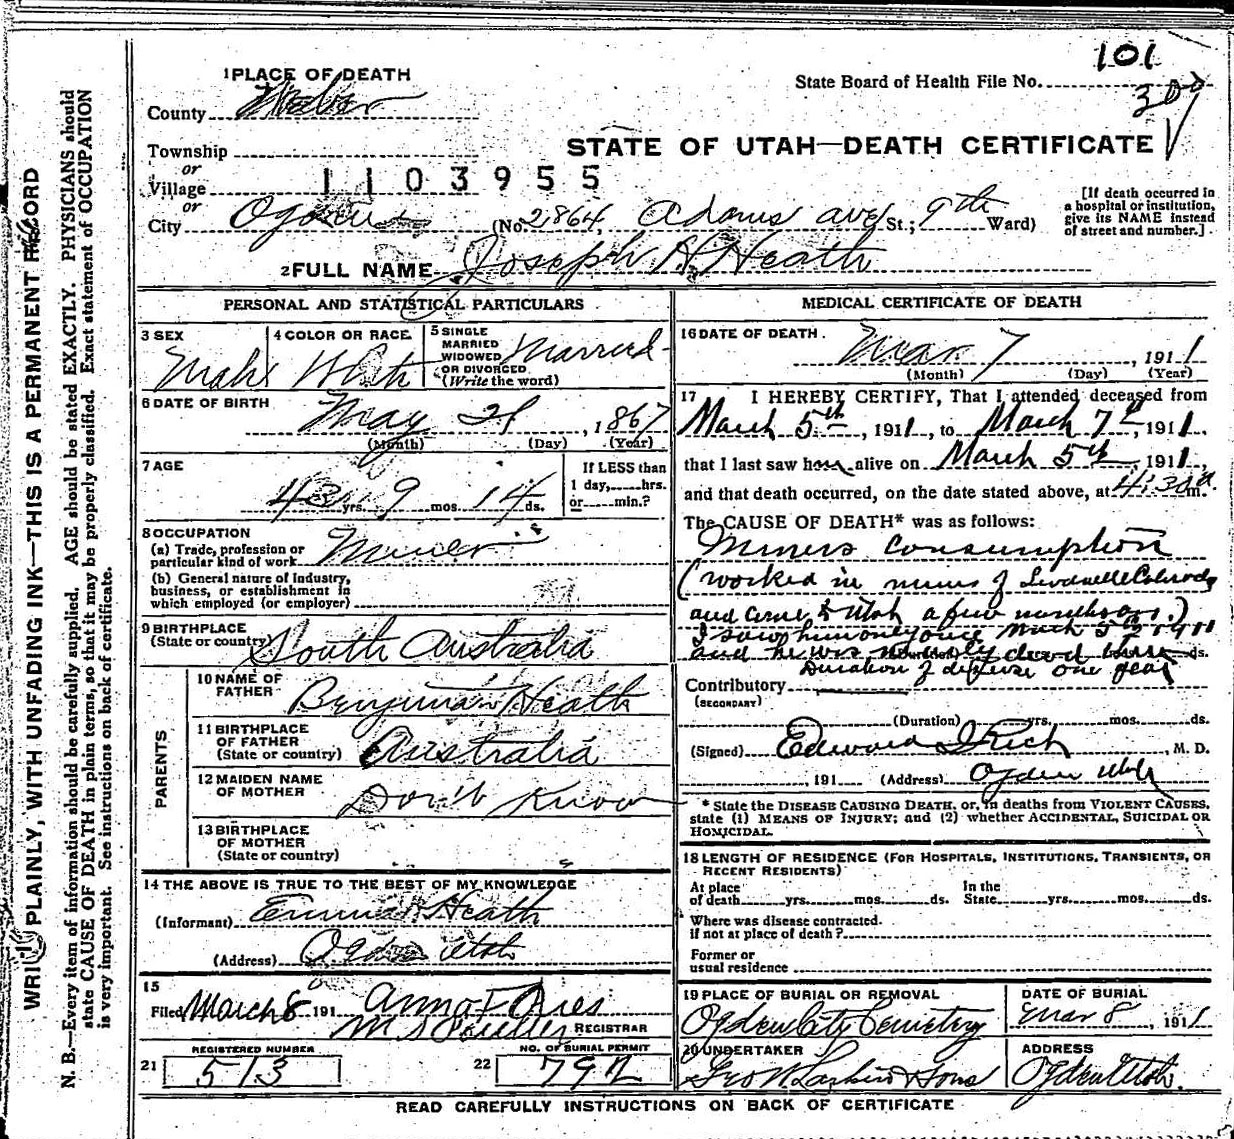 101
State Board of Health File No.
307
1 PLACE OF DEATH
County Weber
STATE OF UTAH—DEATH CERTIFICATE
Township
or
Village 1103955
or
City Ogden (No. 2864, Adams ave St.; 9th Ward)
[If death occurred in a hospital or institution, give its NAME instead of street and number.]
2 FULL NAME Joseph H. Heath
PERSONAL AND STATISTICAL PARTICULARS
3 SEX
Male
4 COLOR OR RACE
White
5 SINGLE
MARRIED
WIDOWED
OR DIVORCED
(Write the word)
Married
6 DATE OF BIRTH
May , 1867
(Month) (Day) (Year)
7 AGE
43 yrs. 9 mos. 14 ds.
If LESS than
1 day, hrs.
or min.?
8 OCCUPATION
(a) Trade, profession or
particular kind of work Miner
(b) General nature of industry,
business, or establishment in
which employed (or employer)
9 BIRTHPLACE
(State or country) South Australia
PARENTS
10 NAME OF
FATHER Benjamin Heath
11 BIRTHPLACE
OF FATHER
(State or country) Australia
12 MAIDEN NAME
OF MOTHER Don't Know
13 BIRTHPLACE
OF MOTHER
(State or country)
14 THE ABOVE IS TRUE TO THE BEST OF MY KNOWLEDGE
(Informant) Emma Heath
(Address) Ogden Utah
15
Filed March 8 191 Anna F
REGISTRAR
REGISTERED NUMBER
21 513
NO. OF BURIAL PERMIT
22 792
MEDICAL CERTIFICATE OF DEATH
16 DATE OF DEATH
Mar 7, 1911
(Month) (Day) (Year)
17 I HEREBY CERTIFY, That I attended deceased from
March 5th, 1911, to March 7th, 1911,
that I last saw him alive on March 5th, 1911,
and that death occurred, on the date stated above, at 4:30 a m.
The CAUSE OF DEATH* was as follows:
Miners Consumption
(worked in mines of Colorado
and came to Utah a few months ago.)
I saw him only once March 5th 1911
and he was nearly dead then ds.
Duration of disease one year
Contributory
(SECONDARY)
(Duration) yrs. mos. ds.
(Signed) Edward I Rich, M. D.
, 191 (Address) Ogden Utah
* State the DISEASE CAUSING DEATH, or, in deaths from VIOLENT CAUSES,
state (1) MEANS OF INJURY; and (2) whether ACCIDENTAL, SUICIDAL OR
HOMICIDAL.
18 LENGTH OF RESIDENCE (FOR HOSPITALS, INSTITUTIONS, TRANSIENTS, OR
RECENT RESIDENTS)
At place
of death yrs. mos. ds.
In the
State yrs. mos. ds.
Where was disease contracted.
if not at place of death?
Former or
usual residence
19 PLACE OF BURIAL OR REMOVAL
Ogden City Cemetery
DATE OF BURIAL
Mar 8, 1911
20 UNDERTAKER
Geo W Larkin & Sons
ADDRESS
Ogden Utah.
READ CAREFULLY INSTRUCTIONS ON BACK OF CERTIFICATE
WRITE PLAINLY, WITH UNFADING INK—THIS IS A PERMANENT RECORD
N. B.—Every item of information should be carefully supplied. AGE should be stated EXACTLY. PHYSICIANS should
state CAUSE OF DEATH in plain terms, so that it may be properly classified. Exact statement of OCCUPATION
is very important. See instructions on back of certificate.